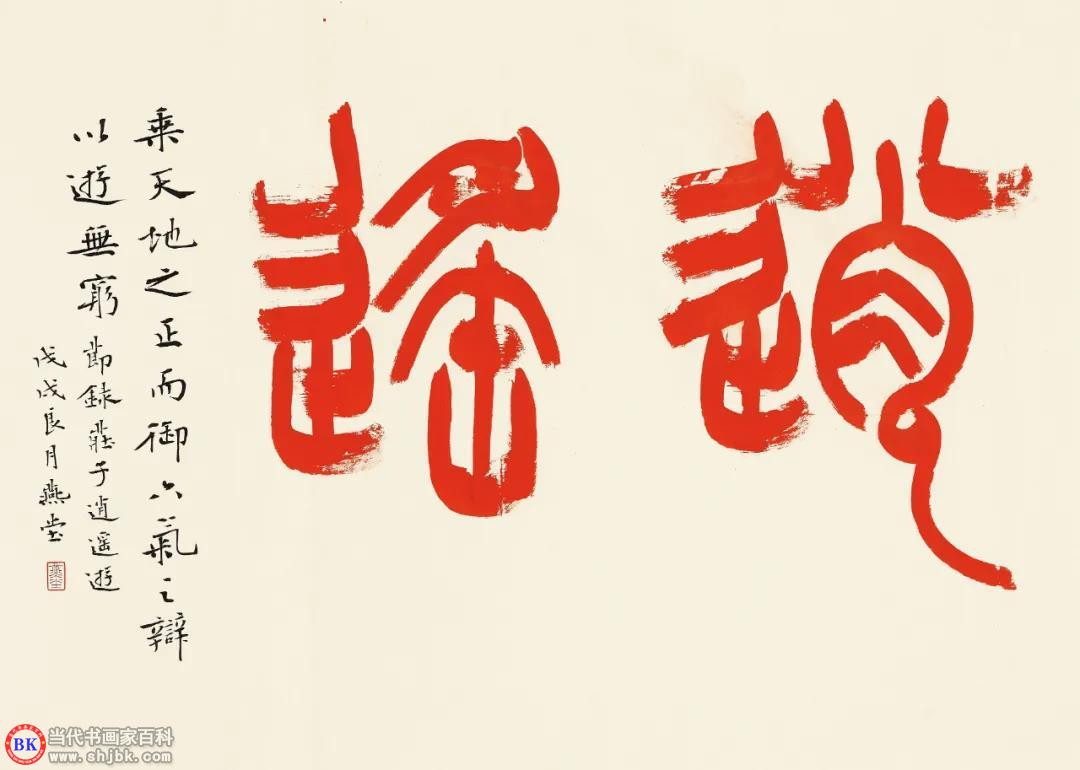 逍遙
乘天地之正而御六氣之辯
以遊無窮 節錄莊子逍遥遊
戊戌良月燕堂
燕堂
BK
当代书画家百科
www.shjbk.com